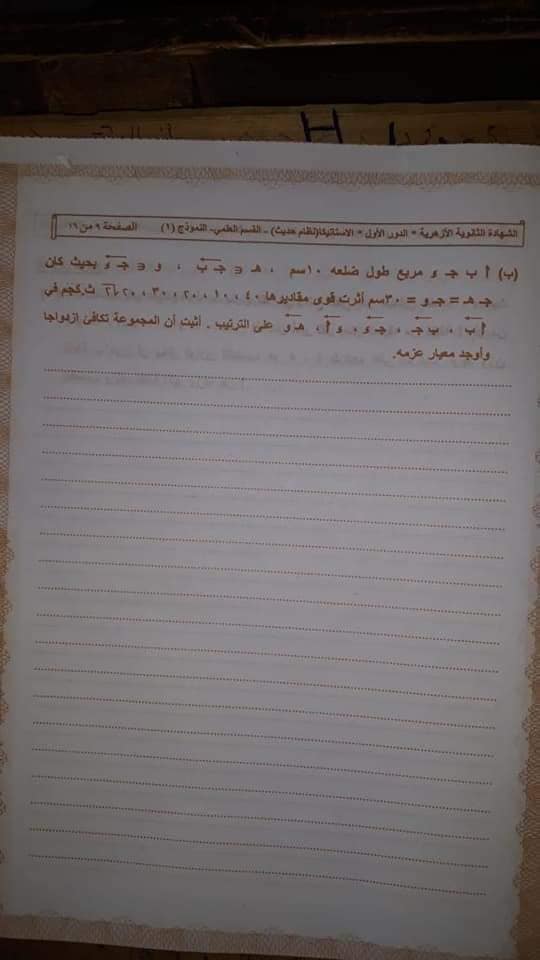 الشهادة الثانوية الأزهرية * الدور الأول * الاستاتيكا(نظام حديث) - القسم العلمي- النموذج (١) الصفحة ٩ من ١٦
(ب) أ ب جـ د مربع طول ضلعه ١٠سم ، هـ ∈ جـ ب ، و ∈ جـ د بحيث كان
جـ هـ = جـ و = ٣٠سم أثرت قوى مقاديرها ٤٠ ، ١٠ ، ٢٠ ، ٣٠ ، ٢٠√٢ ث.كجم في
أ ب ، ب جـ ، جـ د ، د أ ، هـ و على الترتيب . أثبت أن المجموعة تكافئ ازدواجا
وأوجد معيار عزمه.